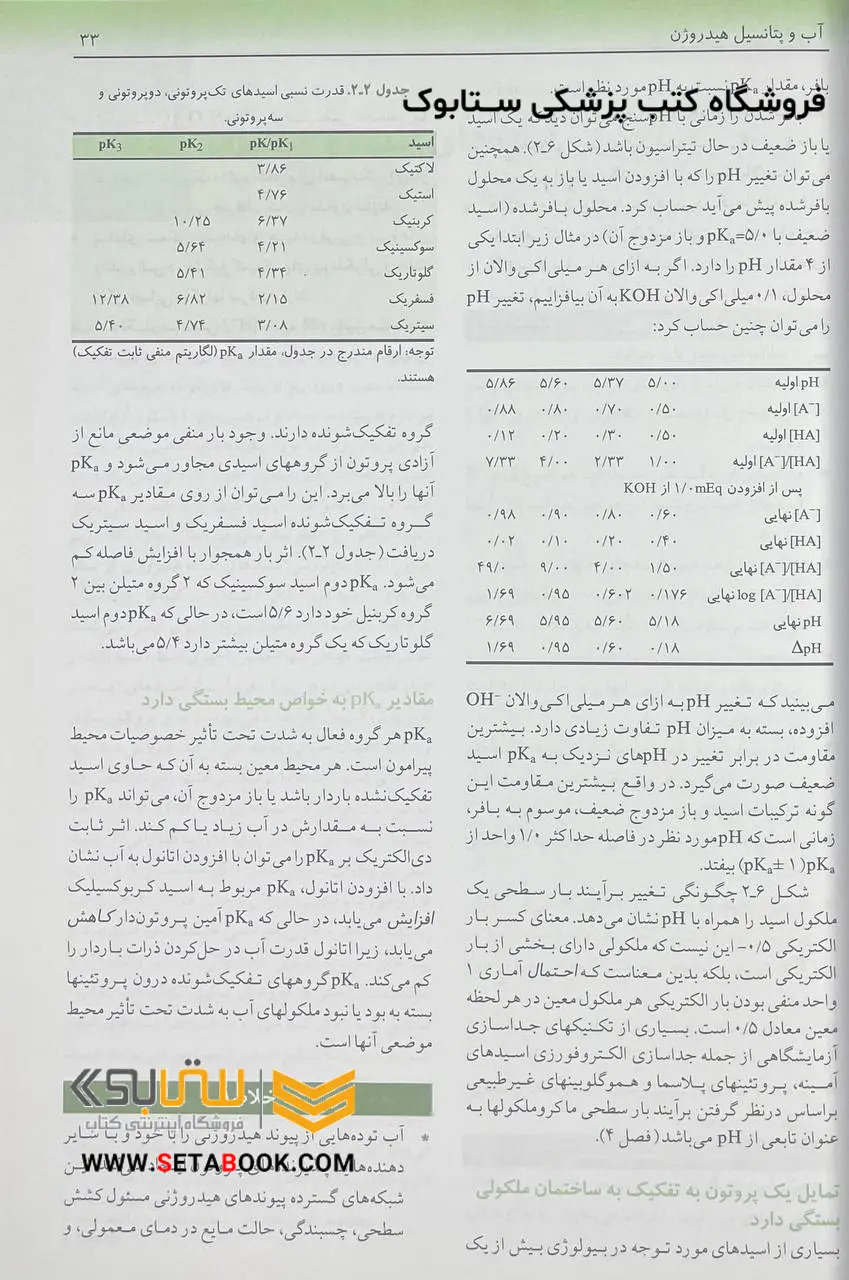 آب و پتانسیل هیدروژن ۳۳
بافر، مقدار pKa نسبت به pH مورد نظر است.
فروشگاه کتب پزشکی ستابوک
شدن را زمانی با pHسنج می‌توان دید که یک اسید
یا باز ضعیف در حال تیتراسیون باشد (شکل ۶ـ۲). همچنین
می‌توان تغییر pH را که با افزودن اسید یا باز به یک محلول
بافرشده پیش می‌آید حساب کرد. محلول بافرشده (اسید
ضعیف با pKa=۵/۰ و باز مزدوج آن) در مثال زیر ابتدا یکی
از ۴ مقدار pH را دارد. اگر به ازای هر میلی‌اکی‌والان از
محلول، ۰/۱ میلی‌اکی‌والان KOH به آن بیافزاییم، تغییر pH
را می‌توان چنین حساب کرد:
pH اولیه ۵/۰۰ ۵/۳۷ ۵/۶۰ ۵/۸۶
[A⁻] اولیه ۰/۵۰ ۰/۷۰ ۰/۸۰ ۰/۸۸
[HA] اولیه ۰/۵۰ ۰/۳۰ ۰/۲۰ ۰/۱۲
[A⁻]/[HA] اولیه ۱/۰۰ ۲/۳۳ ۴/۰۰ ۷/۳۳
پس از افزودن ۰/۱mEq از KOH
[A⁻] نهایی ۰/۶۰ ۰/۸۰ ۰/۹۰ ۰/۹۸
[HA] نهایی ۰/۴۰ ۰/۲۰ ۰/۱۰ ۰/۰۲
[A⁻]/[HA] نهایی ۱/۵۰ ۴/۰۰ ۹/۰۰ ۴۹/۰
log [A⁻]/[HA] نهایی ۰/۱۷۶ ۰/۶۰۲ ۰/۹۵ ۱/۶۹
pH نهایی ۵/۱۸ ۵/۶۰ ۵/۹۵ ۶/۶۹
ΔpH ۰/۱۸ ۰/۶۰ ۰/۹۵ ۱/۶۹
می‌بینید که تغییر pH به ازای هر میلی‌اکی‌والان OH⁻
افزوده، بسته به میزان pH تفاوت زیادی دارد. بیشترین
مقاومت در برابر تغییر در pHهای نزدیک به pKa اسید
ضعیف صورت می‌گیرد. در واقع بیشترین مقاومت این
گونه ترکیبات اسید و باز مزدوج ضعیف، موسوم به بافر،
زمانی است که pH مورد نظر در فاصله حداکثر ۱/۰ واحد از
pKa (pKa± ۱) بیفتد.
شکل ۶ـ۲ چگونگی تغییر برآیند بار سطحی یک
ملکول اسید را همراه با pH نشان می‌دهد. معنای کسر بار
الکتریکی ۰/۵- این نیست که ملکولی دارای بخشی از بار
الکتریکی است، بلکه بدین معناست که احتمال آماری ۱
واحد منفی بودن بار الکتریکی هر ملکول معین در هر لحظه
معین معادل ۰/۵ است. بسیاری از تکنیکهای جداسازی
آزمایشگاهی از جمله جداسازی الکتروفورزی اسیدهای
آمینه، پروتئینهای پلاسما و هموگلوبینهای غیرطبیعی
براساس درنظر گرفتن برآیند بار سطحی ماکروملکولها به
عنوان تابعی از pH می‌باشد (فصل ۴).
تمایل یک پروتون به تفکیک به ساختمان ملکولی
بستگی دارد
بسیاری از اسیدهای مورد توجه در بیولوژی بیش از یک
جدول ۲ـ۲. قدرت نسبی اسیدهای تک‌پروتونی، دوپروتونی و
سه‌پروتونی.
اسید pK/pK₁ pK₂ pK₃
لاکتیک ۳/۸۶
استیک ۴/۷۶
کربنیک ۶/۳۷ ۱۰/۲۵
سوکسینیک ۴/۲۱ ۵/۶۴
گلوتاریک ۴/۳۴ ۵/۴۱
فسفریک ۲/۱۵ ۶/۸۲ ۱۲/۳۸
سیتریک ۳/۰۸ ۴/۷۴ ۵/۴۰
توجه: ارقام مندرج در جدول، مقدار pKa (لگاریتم منفی ثابت تفکیک)
هستند.
گروه تفکیک‌شونده دارند. وجود بار منفی موضعی مانع از
آزادی پروتون از گروههای اسیدی مجاور می‌شود و pKa
آنها را بالا می‌برد. این را می‌توان از روی مقادیر pKa سه
گروه تفکیک‌شونده اسید فسفریک و اسید سیتریک
دریافت (جدول ۲ـ۲). اثر بار همجوار با افزایش فاصله کم
می‌شود. pKa دوم اسید سوکسینیک که ۲ گروه متیلن بین ۲
گروه کربنیل خود دارد ۵/۶ است، در حالی که pKa دوم اسید
گلوتاریک که یک گروه متیلن بیشتر دارد ۵/۴ می‌باشد.
مقادیر pKa به خواص محیط بستگی دارد
pKa هر گروه فعال به شدت تحت تأثیر خصوصیات محیط
پیرامون است. هر محیط معین بسته به آن که حاوی اسید
تفکیک‌نشده باردار باشد یا باز مزدوج آن، می‌تواند pKa را
نسبت به مقدارش در آب زیاد یا کم کند. اثر ثابت
دی‌الکتریک بر pKa را می‌توان با افزودن اتانول به آب نشان
داد. با افزودن اتانول، pKa مربوط به اسید کربوکسیلیک
افزایش می‌یابد، در حالی که pKa آمین پروتون‌دار کاهش
می‌یابد، زیرا اتانول قدرت آب در حل‌کردن ذرات باردار را
کم می‌کند. pKa گروههای تفکیک‌شونده درون پروتئینها
بسته به بود یا نبود ملکولهای آب به شدت تحت تأثیر محیط
موضعی آنها است.
ستابوک
فروشگاه اینترنتی کتاب
* آب توده‌هایی از پیوند هیدروژنی را با خود و با سایر
WWW.SETABOOK.COM
شبکه‌های گسترده پیوندهای هیدروژنی مسئول کشش
سطحی، چسبندگی، حالت مایع در دمای معمولی، و